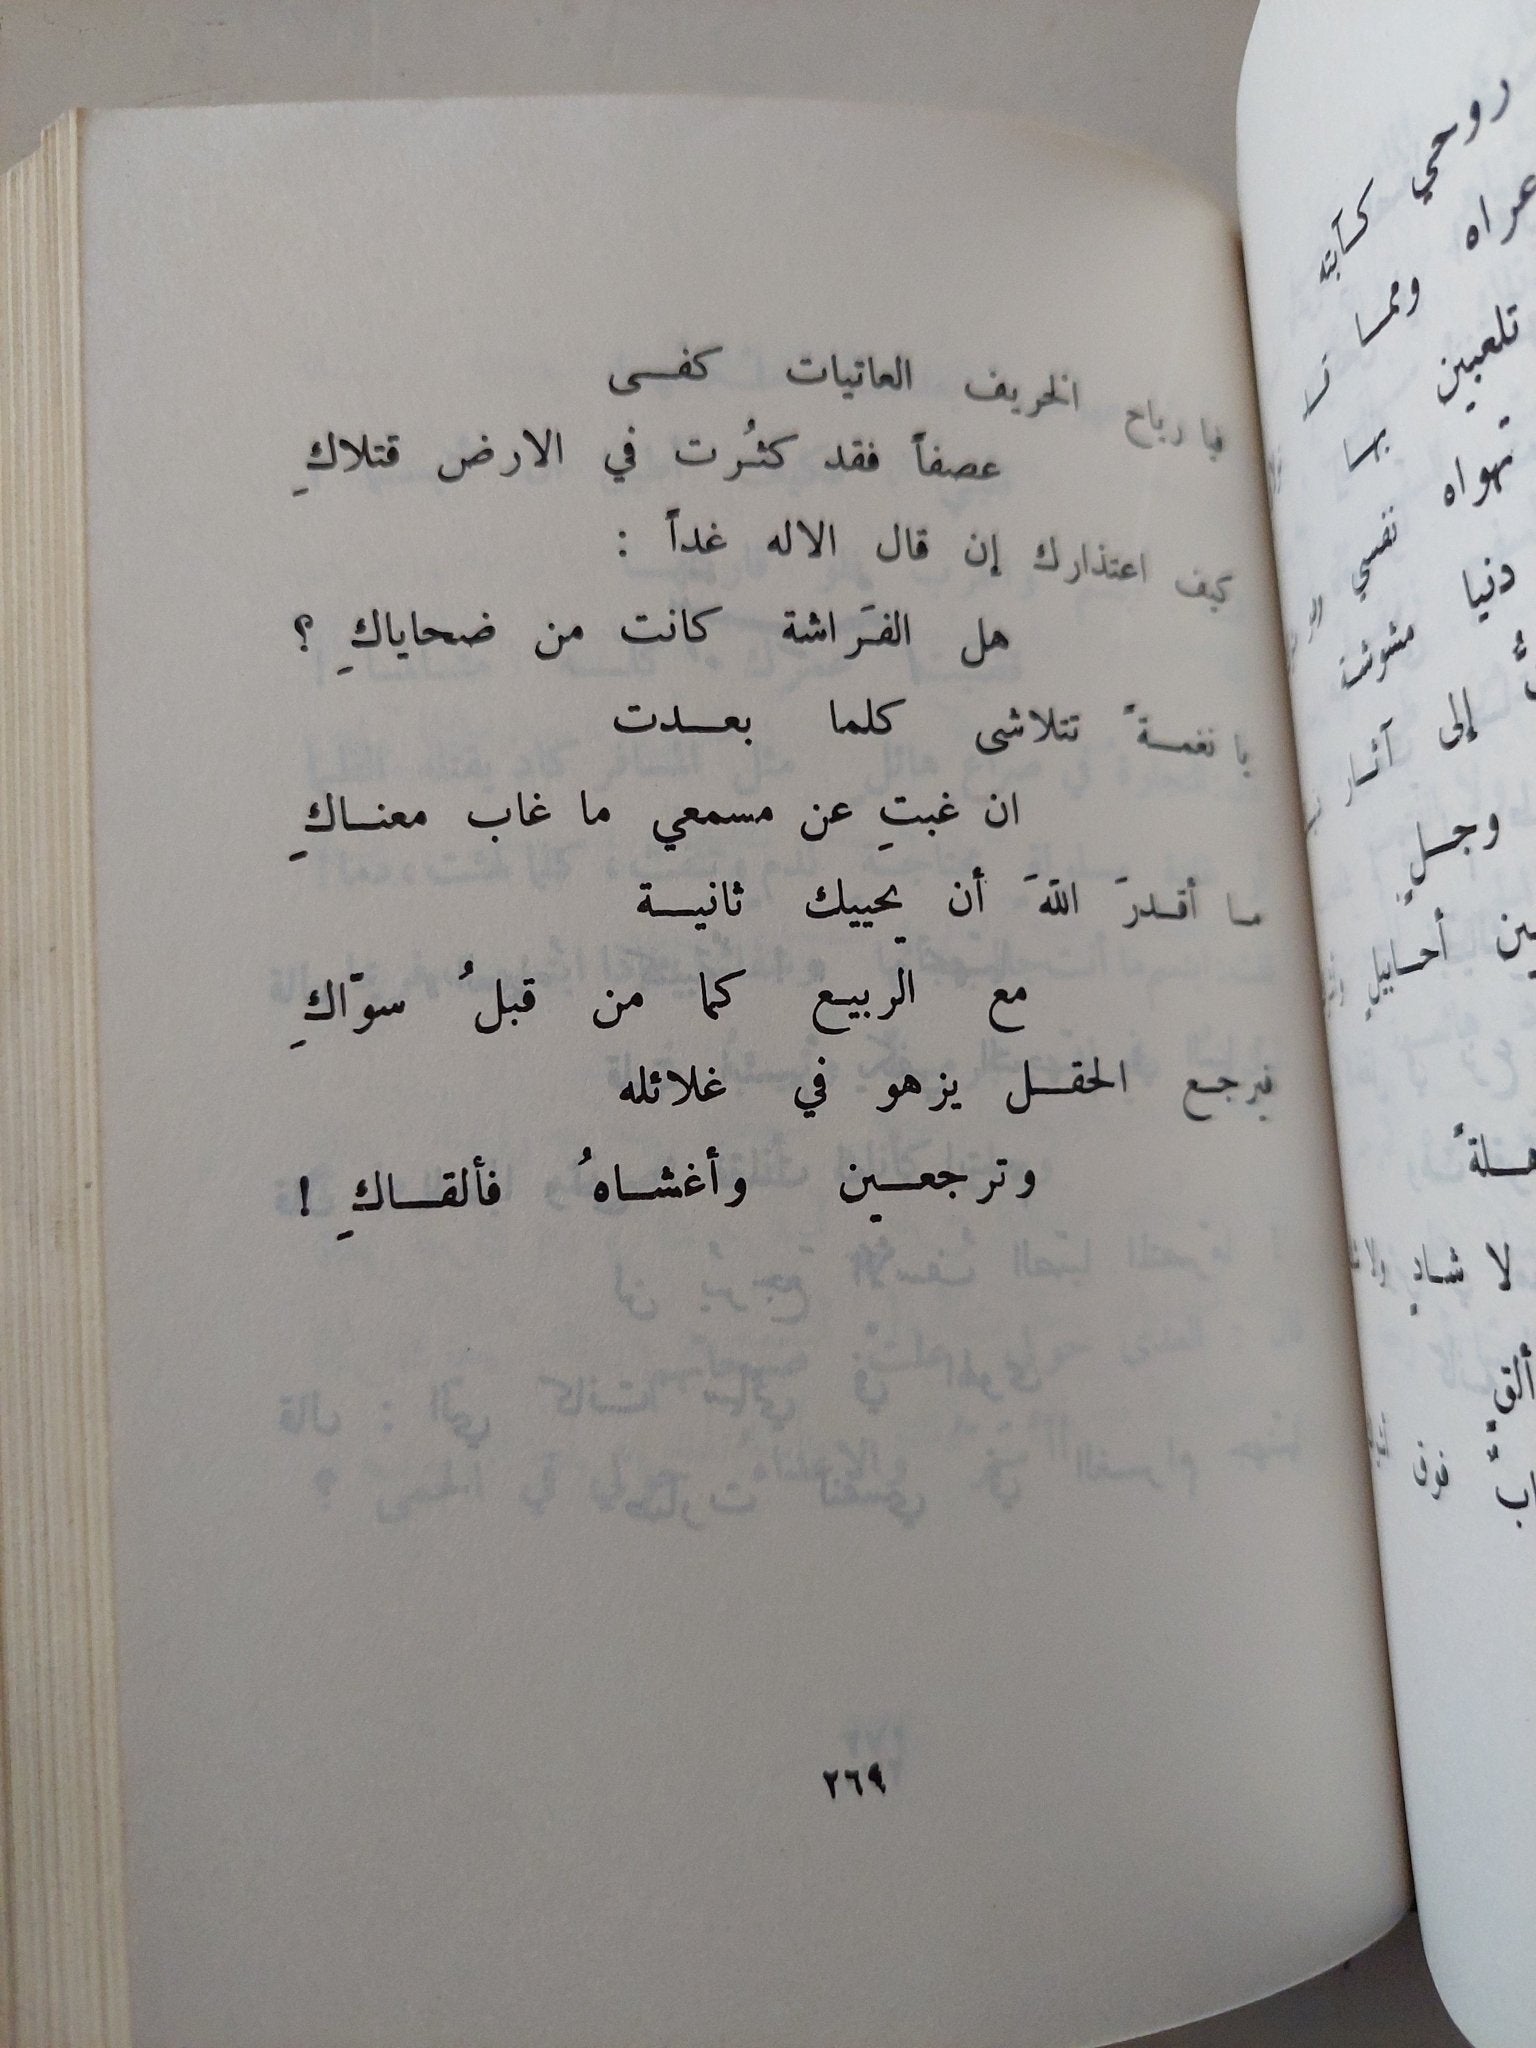 فيا رياح الخريف العاتيات كفى
عصفاً فقد كثُرت في الارض قتلاكِ
كيف اعتذارك إن قال الاله غداً :
هل الفَراشة كانت من ضحاياكِ ؟
يا نغمةً تتلاشى كلما بعدت
ان غبتِ عن مسمعي ما غاب معناكِ
ما أقدرَ اللّهَ أن يحييك ثانية
مع الربيع كما من قبلُ سوّاكِ
فيرجع الحقل يزهو في غلائله
وترجعين وأغشاهُ فألقاكِ !
٢٦٩
روحي كآبته
ومما
تلعبين بها
تهواه نفسي
دنيا مشوشة
إلى آثار
وجلٍ
أحابيلٍ
لا شادٍ ولا
ألقٍ
فوق